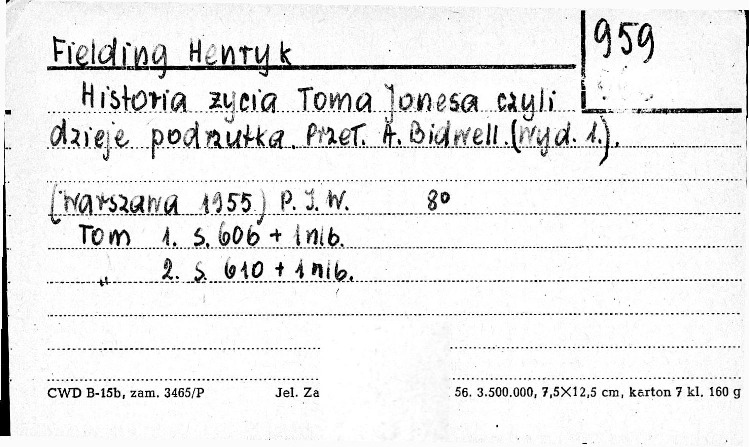 Fielding Henryk
959
Historia życia Toma Jonesa czyli
dzieje podrzutka. Przeł. A. Bidwell. (Wyd. 1.).
(Warszawa 1955) P. I. W. 8°
Tom 1. s. 606 + 1 nlb.
" 2. s. 610 + 1 nlb.
CWD B-15b, zam. 3465/P Jel. Za 56. 3.500.000, 7,5×12,5 cm, karton 7 kl. 160 g